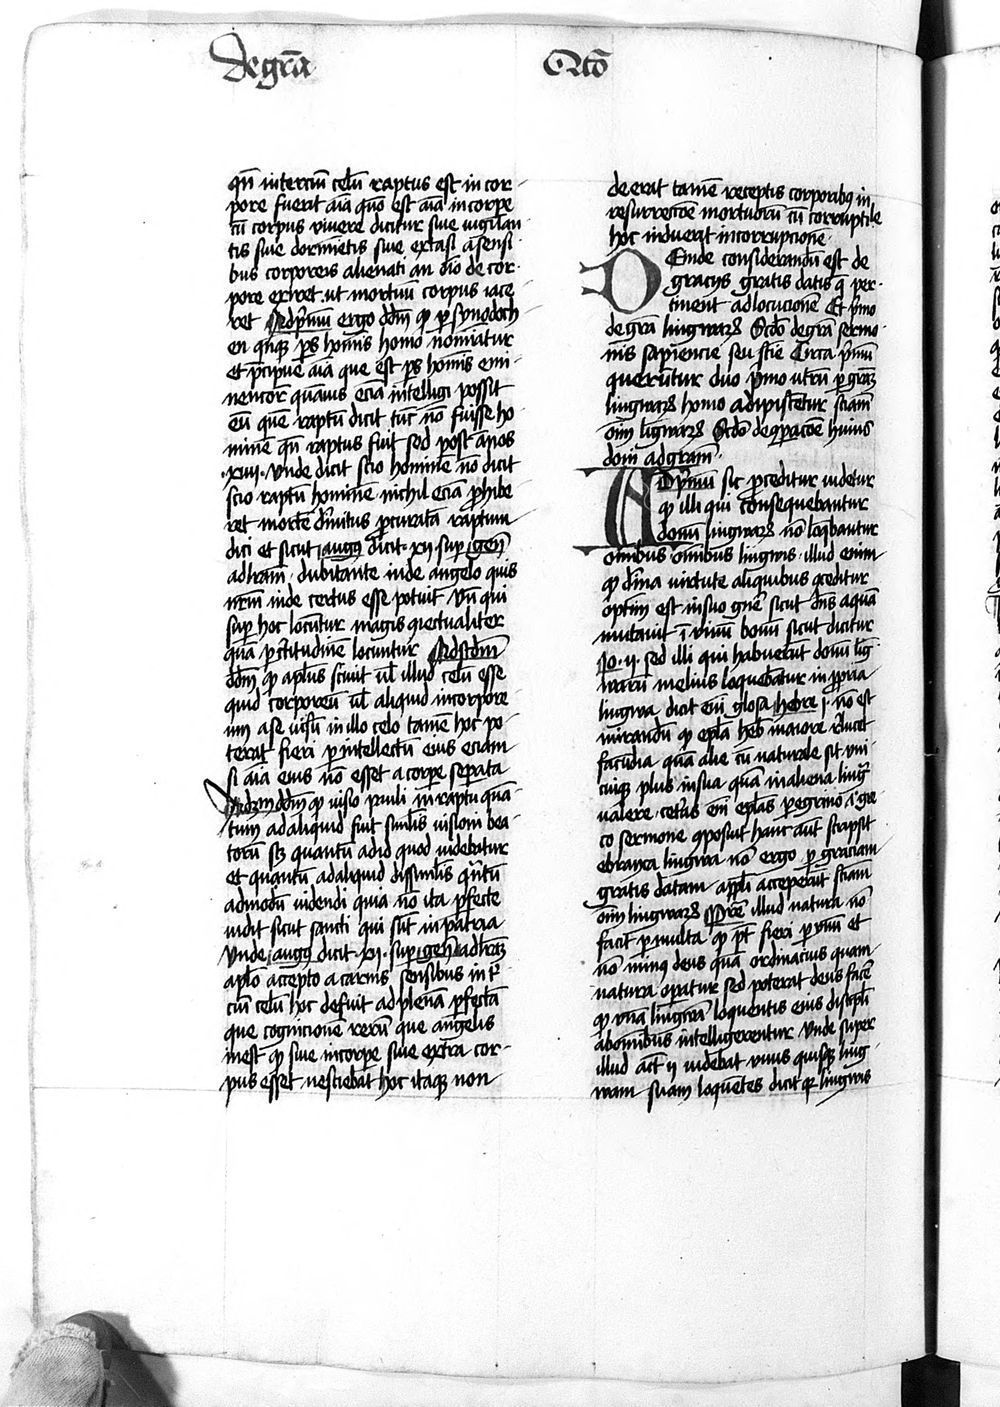 De gr̄a Octō
qn̄ in terciū celū raptus est in cor-
pore fuerit aīa quō est aīa in corpe
cū corpus vivere dicitur siue uigilan
tis siue dormiētis siue extasi a sensi-
bus corporeis alienati an oīo de cor-
pore exiret ut mortuū corpus iace-
ret Ad pͥmū ergo dd̄m ꝙ per synodoch
en qn̄qꝫ ps hoīs homo noīatur
et pͥcipue aīa que est ps hoīs emi-
nencior quāuis eciā intelligi possit
eū quē raptū dicit tūc nō fuisse ho-
minē qn̄ raptus fuit sed post ānos
.xiiij. Unde dicit scio hominē nō dicit
scio raptū hominē nichil eciā ꝓhibe-
ret mortē diuinitus ꝓcuratā raptum
dici et sicut augꝯ dicit xij sup gen̄
ad lr̄am dubitante inde apostolo quis
nr̄m inde certus esse potuit Vn̄ qui
sup hoc locūtur magis ꝯiecturaliter
quā per certitudinē locuntur Ad scdm
dd̄m ꝙ apl̄us sciuit ul̄ illud celū esse
quid corporeū ul̄ aliquid incorpore-
um a se uisū in illo celo tamē hoc po-
terat fieri per intellectū eius eciam
si aīa eius nō esset a corpe separata
Ad 3m dd̄m ꝙ visio pauli in raptu quā-
tum ad aliquid fuit similis uisioni bea-
torū scꝫ quantū ad id quod uidebatur
et quantū ad aliquid dissimilis quātū
ad modū uidendi quia nō ita ꝑfecte
uidit sicut sancti qui sūt in patria
Unde augꝯ dicit xij sup gen̄ ad lr̄am
apl̄o arrepto a carnis sensibus in ter-
ciū celū hoc defuit ad plenā ꝑfectā
que cognicionē rerū que angelis
inest ꝙ siue in corpe siue extra cor-
pus esset nesciebat hoc itaqꝫ non
deerit tamē receptis corporibꝯ in
resurrectiōe mortuorū cū corruptile
hoc induerit incorrupcionē
DEinde considerandū est de
gracijs gratis datis q̄ per-
tinent ad locucionē Et pͥmo
de gr̄a lingwarꝝ Scdo de gr̄a sermo-
nis sapiencie seu scīe Circa pͥmū
queruntur duo pͥmo utrū ꝑ grāꝫ
lingwarꝝ homo adipiscetur sciam
oīm lingwarꝝ Scdo de ꝯparacōe huius
doni ad gr̄am
AD pͥmū sic ꝓceditur uidetur
ꝙ illi qui consequebantur
donū lingwarꝝ nō loqbantur
omnibus omnibus lingwis illud enim
ꝙ diuina virtute aliquibus ꝯceditur
optim̄ est in suo gn̄e sicut dn̄s aquā
mutauit ī vinū bonū sicut dicitur
Jo. ij. sed illi qui habuerūt donū ling-
warū melius loquebātur in ꝓpria
lingwa dicit eni glosa hebre j. nō est
mirandū ꝙ epl̄a ad heb maiore relucet
facūdia quā alie cū naturale sit uni-
cuiqꝫ plus in sua quā in aliena lingᵃ
ualere ceteras em̄ epl̄as peregrino .i. gre-
co sermone ꝯposuit hanc aūt scripsit
ebrayca lingwa nō ergo ꝑ graciam
gratis datam appl̄i acceperūt sciam
oīm lingwarꝝ Preē illud natura nō
facit ꝑ multa ꝙ pōt fieri ꝑ vnū et
nō minꝯ deus quā ordinacius quam
natura opatur sed poterat deus facē
ꝙ vnā lingwā loquentes eius discipl̄i
ab omnibus intelligerentur Unde super
illud act̄ ij uidebat vnus quisqꝫ ling-
wam suam loquētes dicit ꝙ lingwis